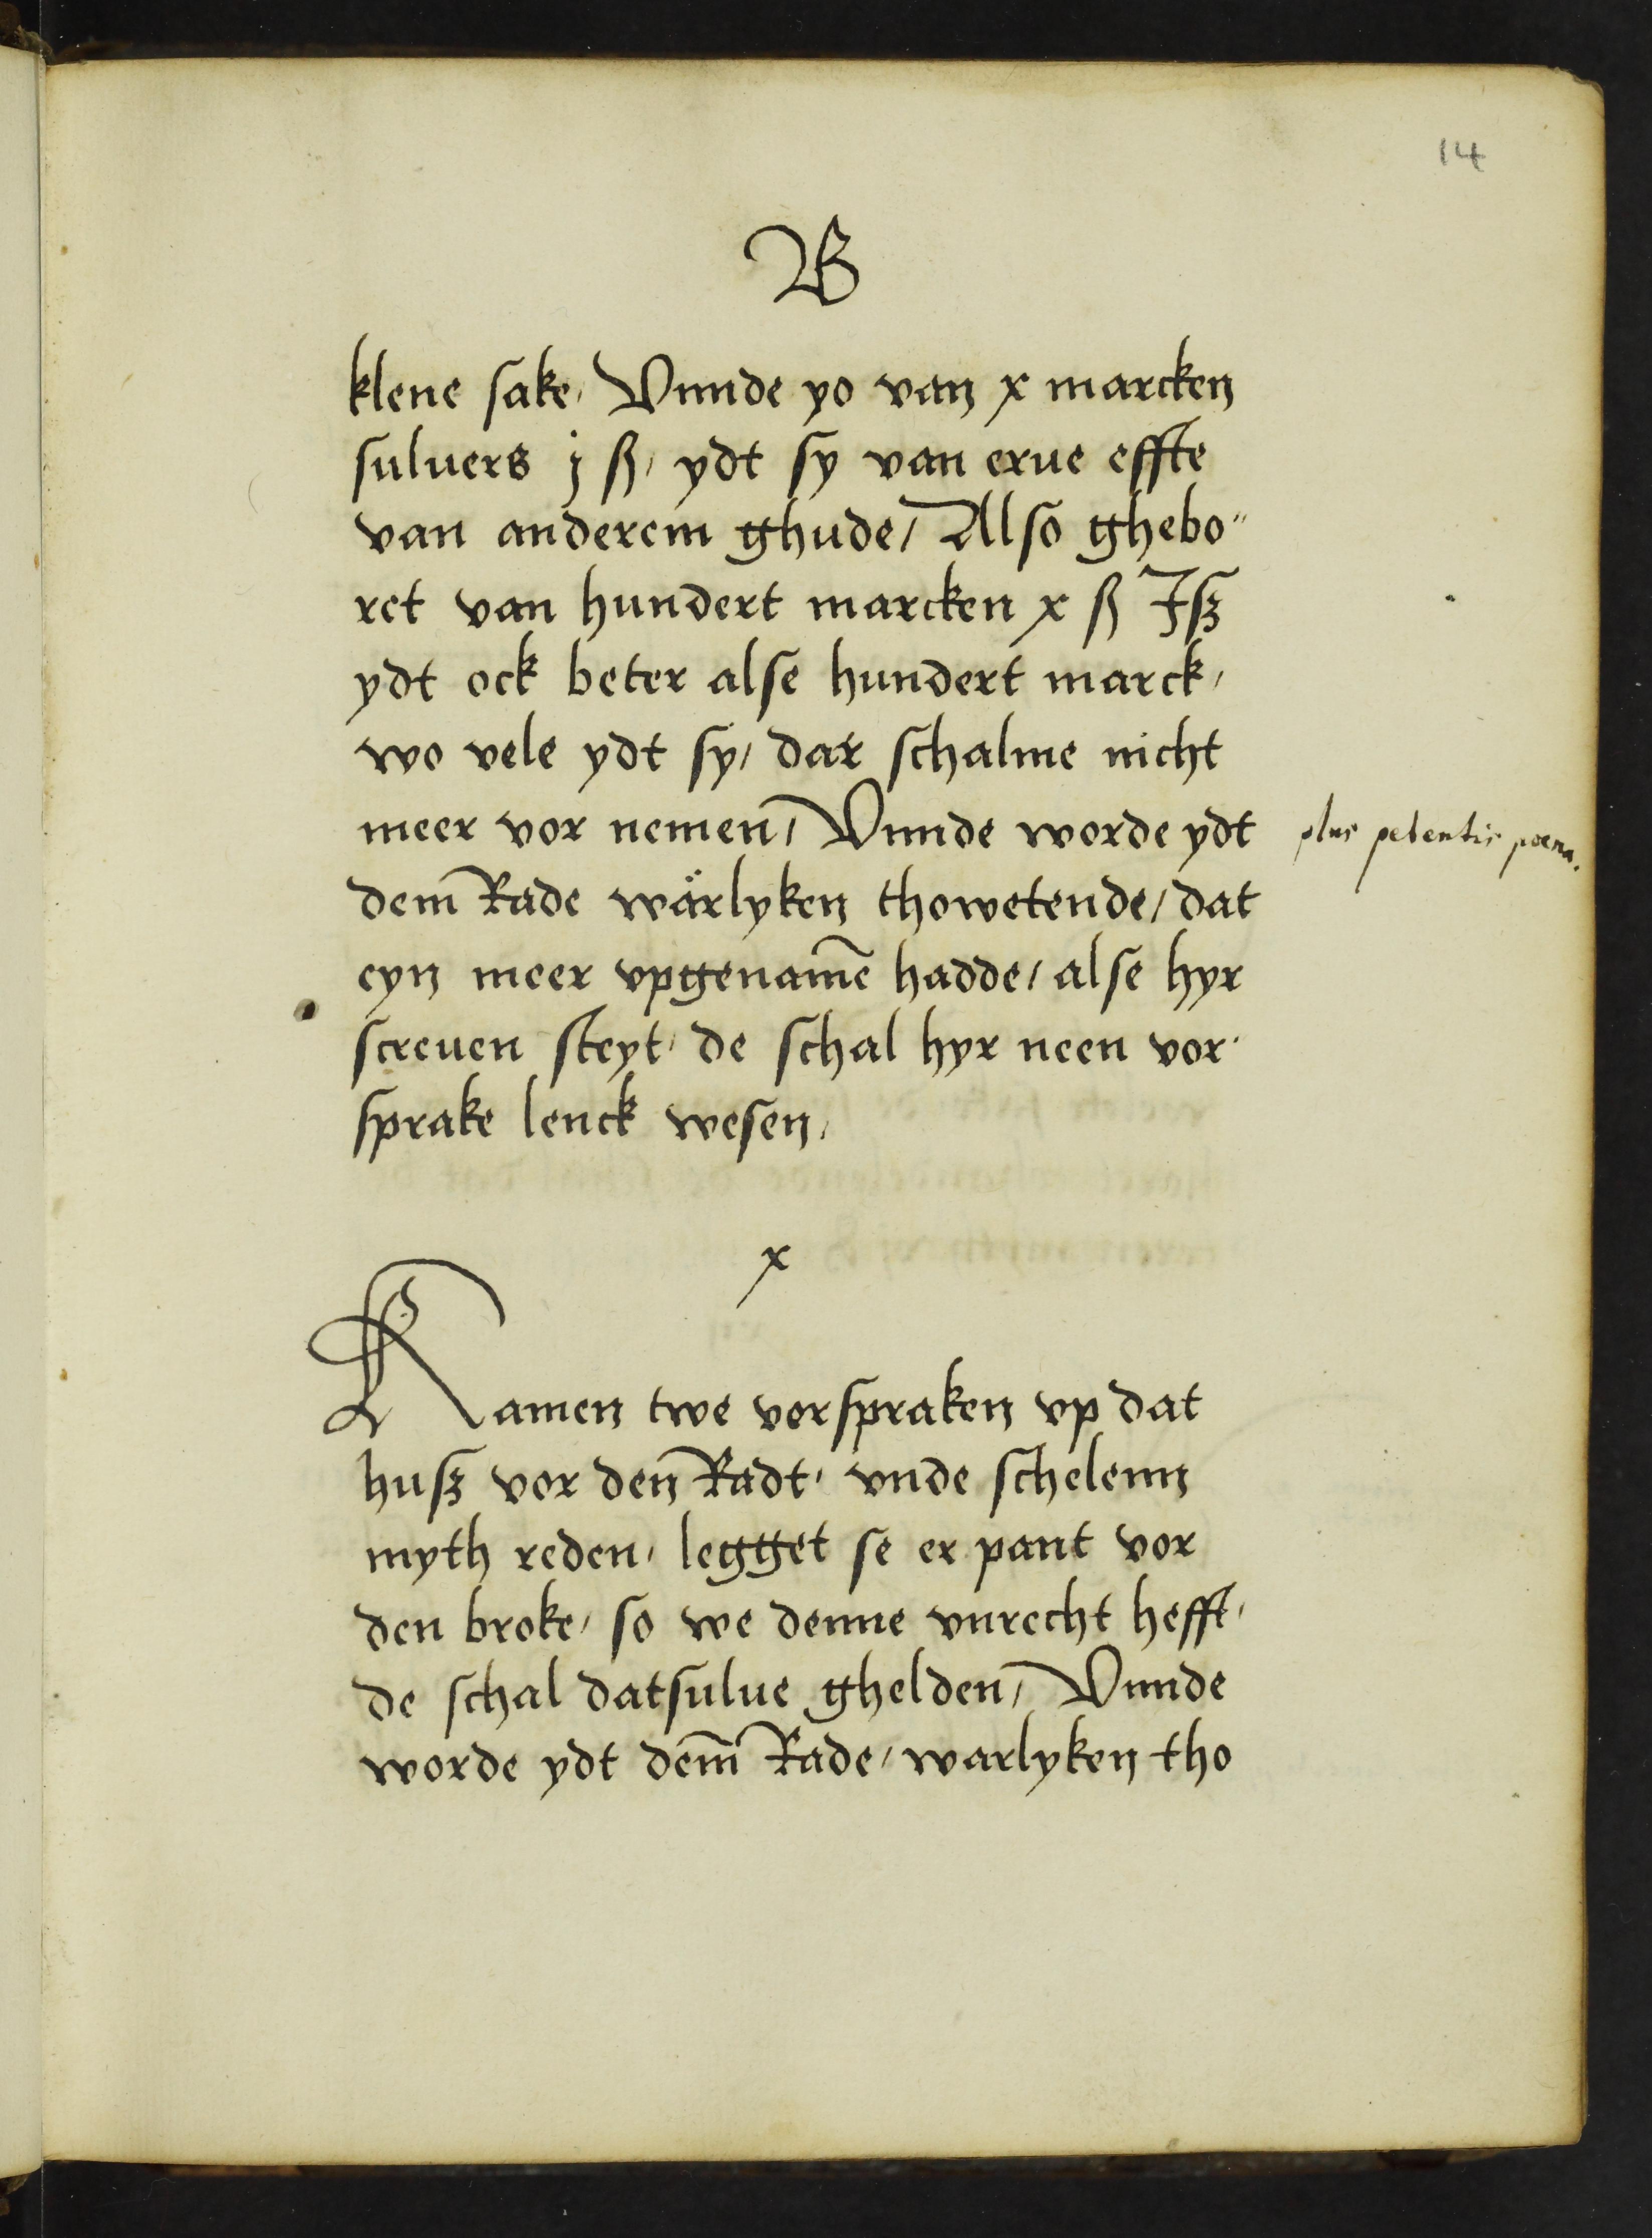 14
B
klene sake / Vnnde yo van x marcken
sulvers j ß / ydt sy van erue effte
van anderem ghude / Also ghebo"
ret van hundert marcken x ß Isz
ydt ock beter alse hundert marck /
wo vele ydt sy / dar schalme nicht
meer vor nemen / Vnnde worde ydt
plus petentis poena.
dem Rade wärlyken thowetende / dat
eyn meer vpgename̅ hadde / alse hyr
screuen steyt / de schal hyr neen vor
sprake lenck wesen /
x
Kamen twe vorspraken vp dat
husz vor den Radt / vnde schelenn
myth reden / legget se er pant vor
den broke / so we denne vnrecht hefft /
de schal datsulue ghelden / Vnnde
worde ydt dem̅ Rade / warlyken tho